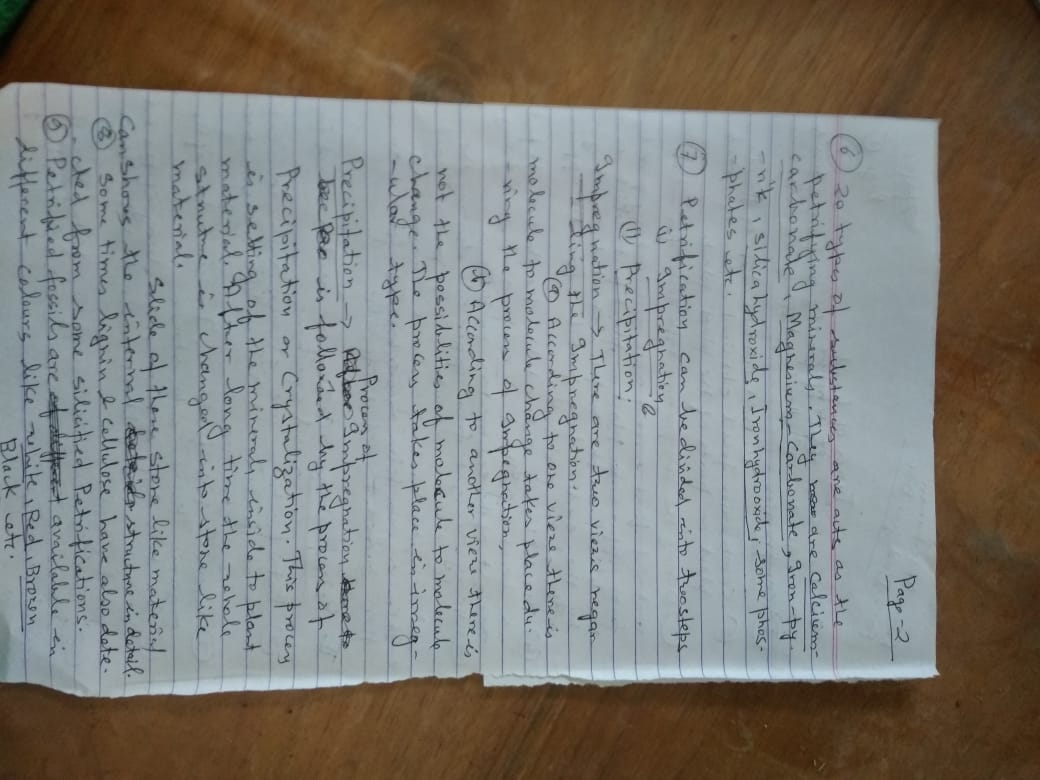 Page-2
⑥ 20 types of substances are acts as the
petrifying minerals. They are calcium-
carbonate, Magnesium-Carbonate, Iron-py.
-rite, silica hydroxide, Iron hydroxide, some phos.
-phates etc.
⑦ Petrification can be divided into two steps
i) Impregnation &
ii) Precipitation.
Impregnation → There are two views regar
-ding the Impregnation.
ⓐ According to one view there is
molecule to molecule change takes place du.
-ring the process of Impegnation,
ⓑ According to another view there is
not the possibilities of molecule to molecule
change. The process takes place in irreg-
-ular type.
Process of
Precipitation → Impregnation
is followed by the process of
Precipitation or Crystalization. This process
is setting of the minerals inside to plant
material. After long time the whole
struture is changed into stone like
material.
Slide of these stone like material
can shows the internal struture in detail.
⑧ Some times lignin & cellulose have also dete-
cted from some silicified Petrifications.
⑨ Petrified fossils are available in
different colours like white, Red, Brown
Black etc.